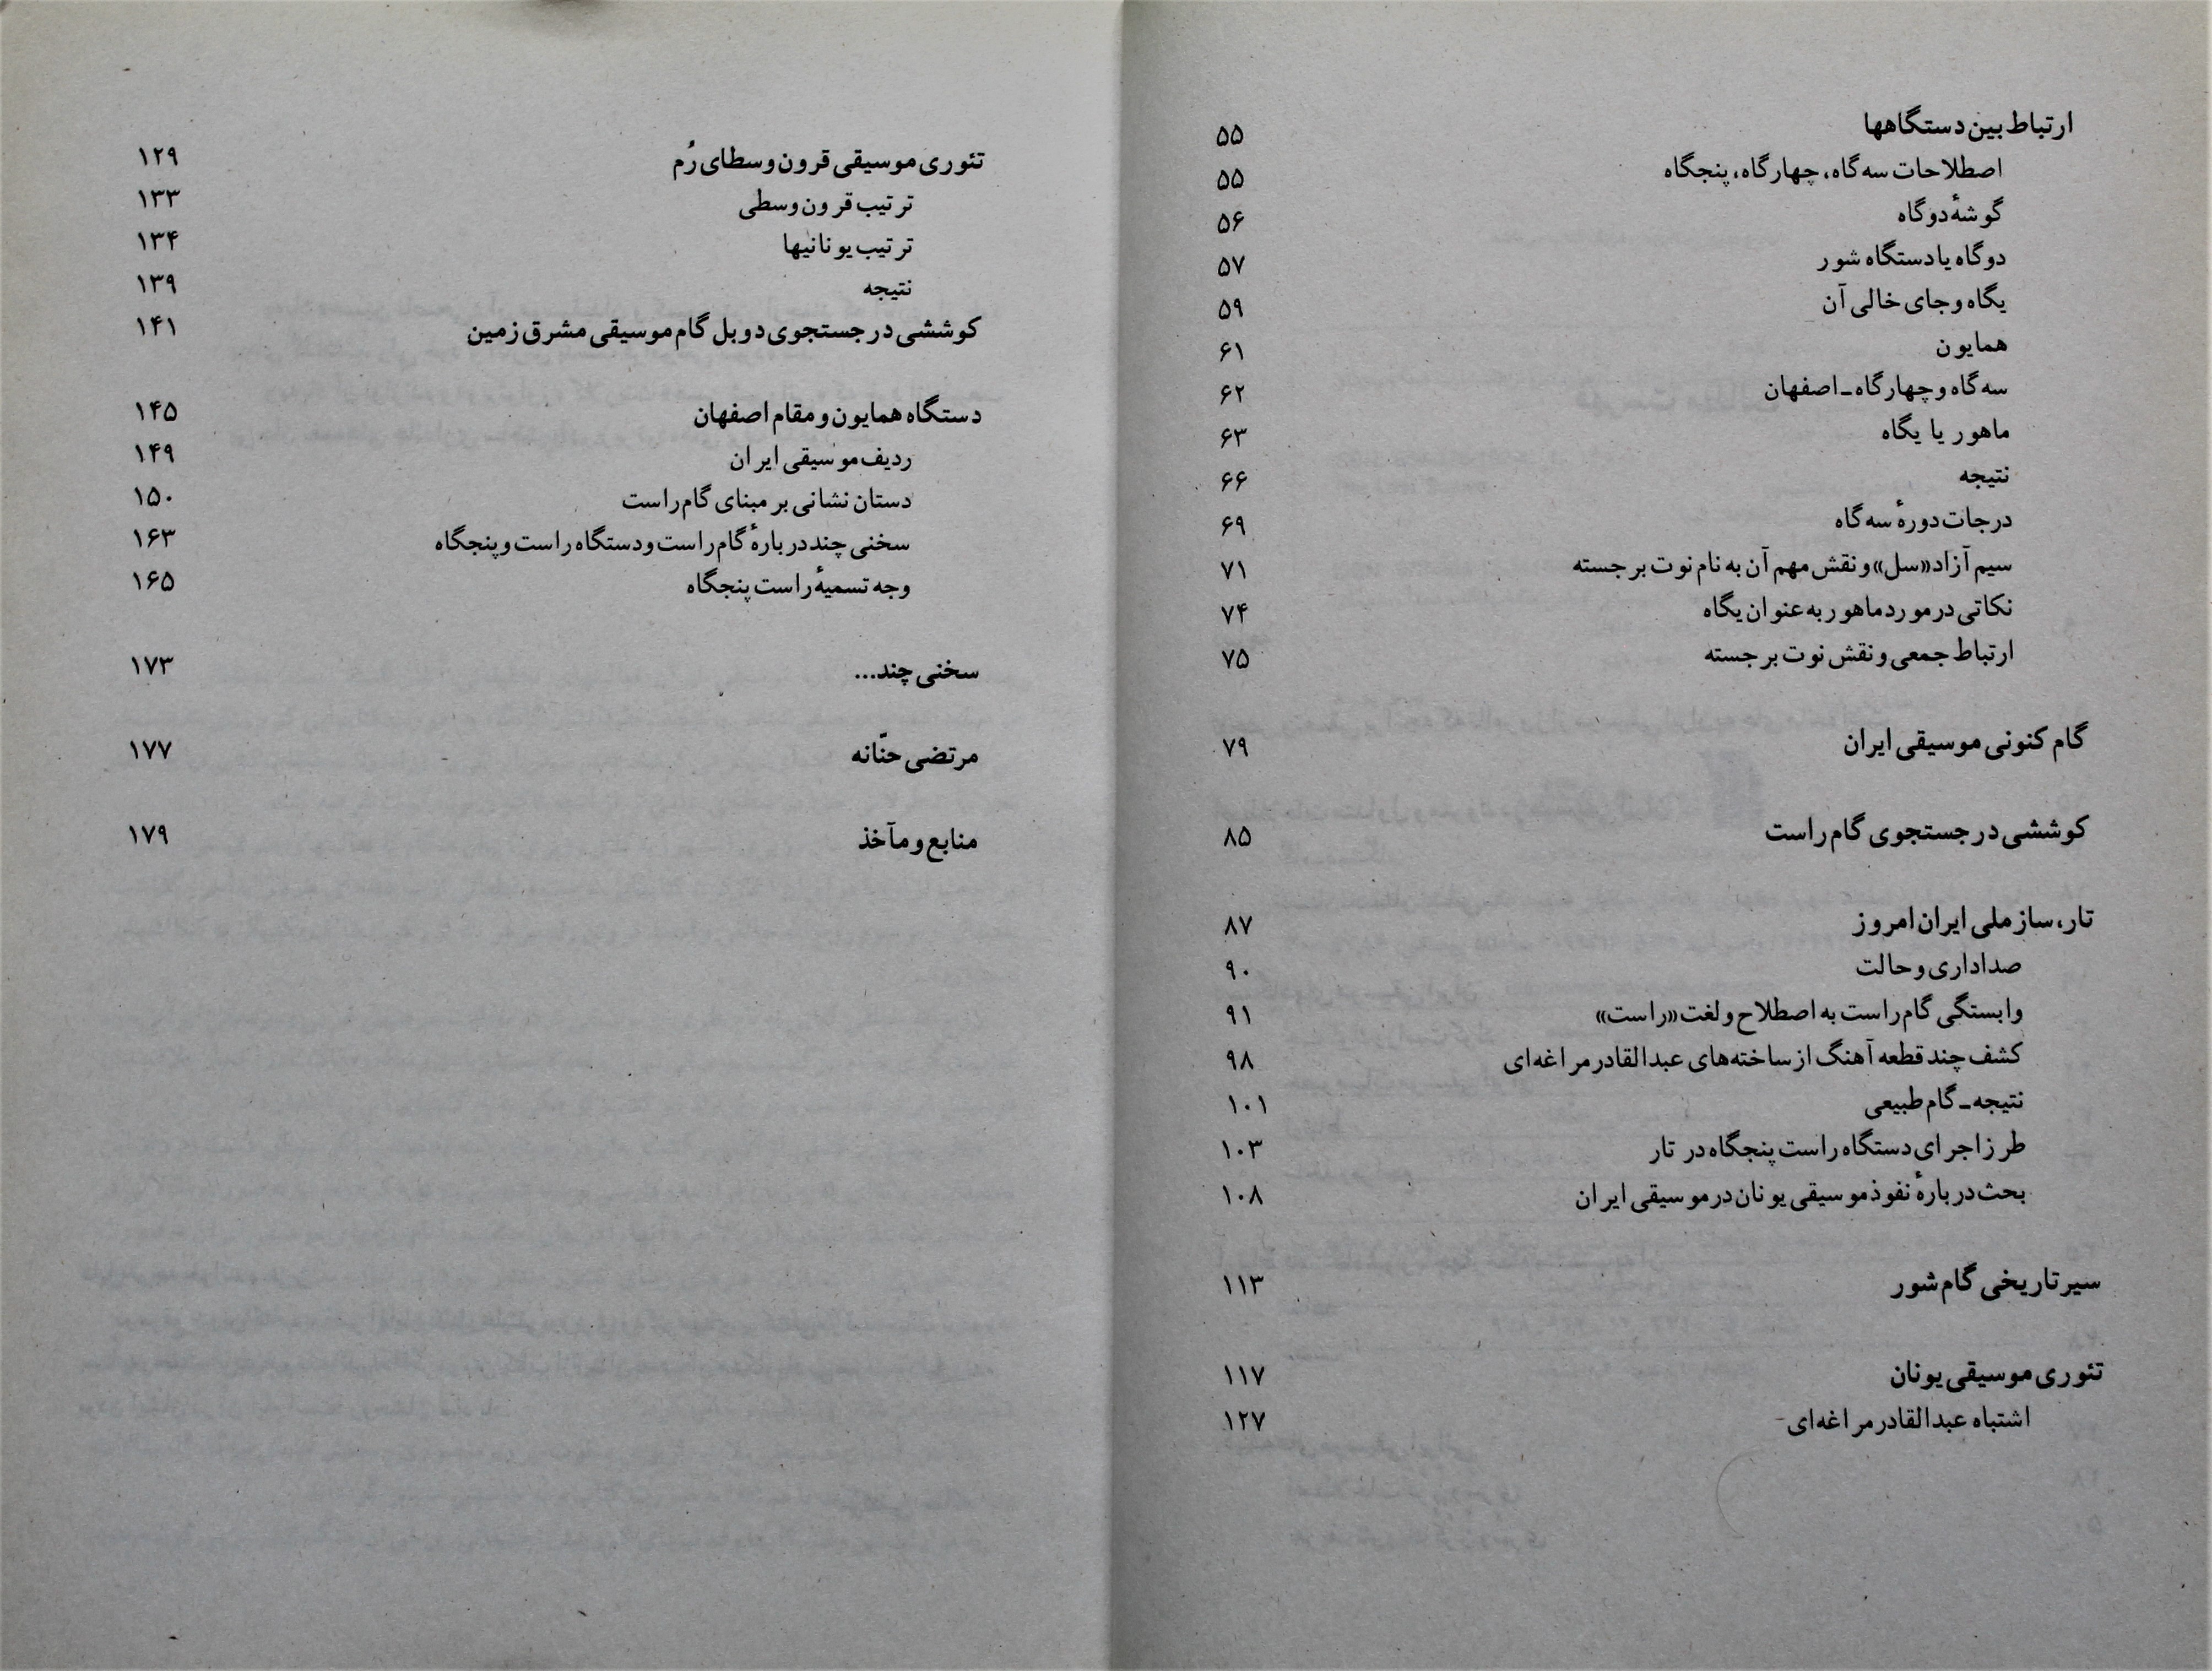 ارتباط بین دستگاهها ۵۵
اصطلاحات سه‌گاه، چهارگاه، پنجگاه ۵۵
گوشهٔ دوگاه ۵۶
دوگاه یا دستگاه شور ۵۷
یگاه و جای خالی آن ۵۹
همایون ۶۱
سه‌گاه و چهارگاه ـ اصفهان ۶۲
ماهور یا یگاه ۶۳
نتیجه ۶۶
درجات دورهٔ سه‌گاه ۶۹
سیم آزاد «سل» و نقش مهم آن به نام نوت برجسته ۷۱
نکاتی در مورد ماهور به عنوان یگاه ۷۴
ارتباط جمعی و نقش نوت برجسته ۷۵
گام کنونی موسیقی ایران ۷۹
کوششی در جستجوی گام راست ۸۵
تار، ساز ملی ایران امروز ۸۷
صداداری و حالت ۹۰
وابستگی گام راست به اصطلاح و لغت «راست» ۹۱
کشف چند قطعه آهنگ از ساخته‌های عبدالقادر مراغه‌ای ۹۸
نتیجه ـ گام طبیعی ۱۰۱
طرز اجرای دستگاه راست پنجگاه در تار ۱۰۳
بحث دربارهٔ نفوذ موسیقی یونان در موسیقی ایران ۱۰۸
سیر تاریخی گام شور ۱۱۳
تئوری موسیقی یونان ۱۱۷
اشتباه عبدالقادر مراغه‌ای ۱۲۷
تئوری موسیقی قرون وسطای رُم ۱۲۹
ترتیب قرون وسطی ۱۳۳
ترتیب یونانیها ۱۳۴
نتیجه ۱۳۹
کوششی در جستجوی دوبل گام موسیقی مشرق زمین ۱۴۱
دستگاه همایون و مقام اصفهان ۱۴۵
ردیف موسیقی ایران ۱۴۹
دستان نشانی بر مبنای گام راست ۱۵۰
سخنی چند دربارهٔ گام راست و دستگاه راست و پنجگاه ۱۶۳
وجه تسمیهٔ راست پنجگاه ۱۶۵
سخنی چند... ۱۷۳
مرتضی حنّانه ۱۷۷
منابع و مآخذ ۱۷۹